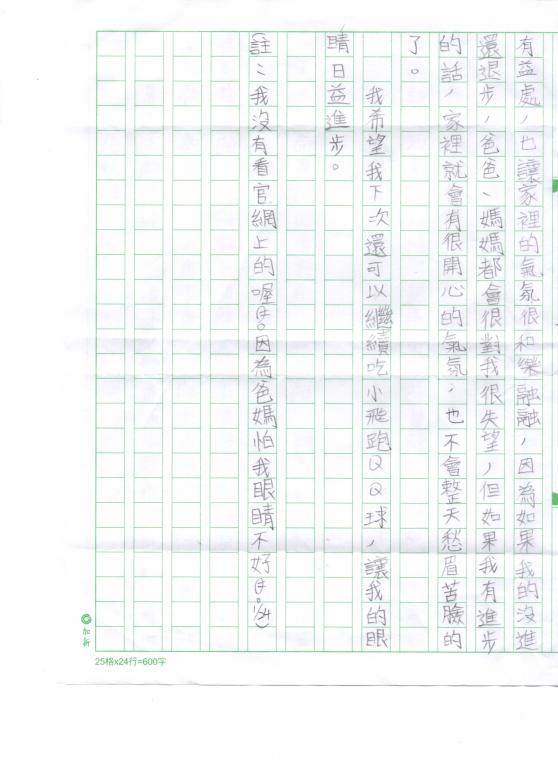 有益處，也讓家裡的氣氛很和樂融融，因為如果我的沒進
還退步，爸爸、媽媽都會很對我很失望，但如果我有進步
的話，家裡就會有很開心的氣氛，也不會整天愁眉苦臉的
了。
我希望我下次還可以繼續吃小飛跑QQ球，讓我的眼
睛日益進步。
(註：我沒有看官網上的喔！因為爸媽怕我眼睛不好
加新
25格x24行=600字